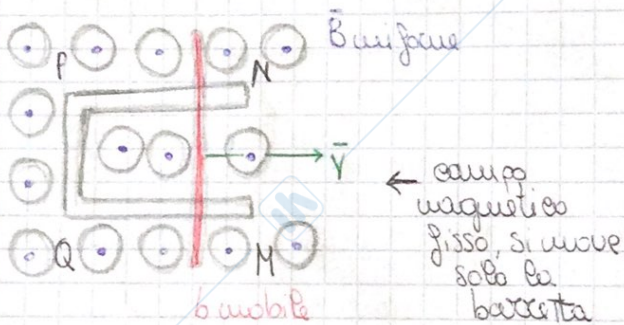 B̄ uniforme
P
N
V̄
← campo
magnetico
fisso, si muove
solo la
barretta
Q
M
b mobile